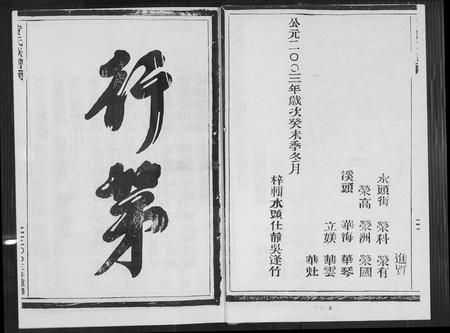 公元二〇〇三年歲次癸未季冬月
進賢
水頭街　榮科　榮有
榮高　榮洲　榮國
溪頭　華海　華琴
立媄　華雲
華灶
梓輯水頭仕靜吳逢竹
行第